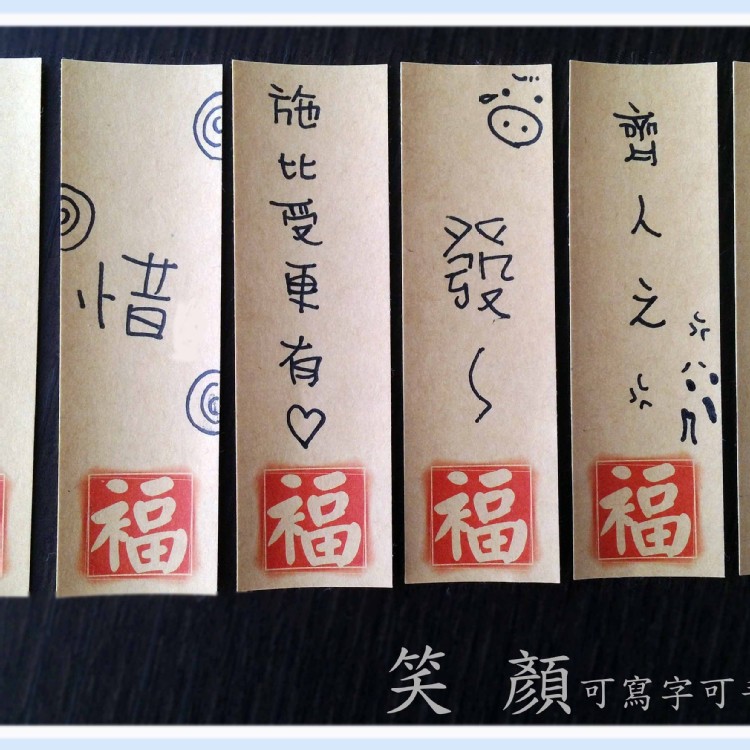 惜
福
施比受更有♡
福
發~
福
人之
福
笑 顏可寫字可